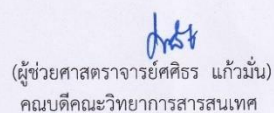 (ผู้ช่วยศาสตราจารย์ศศิธร แก้วมั่น)
คณบดีคณะวิทยาการสารสนเทศ